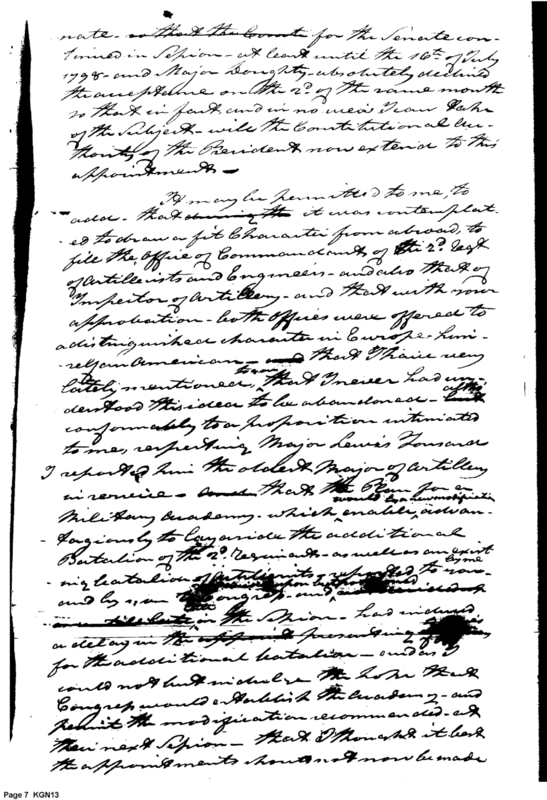 nate - so that the Commt for the Senate con-
tinued in Session - at least until the 16th of July
1798 - and Major Doughty - absolutely declined
the acceptance on the 2d of the same month
so that in fact, and in no view I can take
of the Subject - will the Constitutional Au-
thority of the President now extend to this
appointment -
It may be permitted to me, to
add - that during the it was contemplat-
ed to draw a fit Character from abroad, to
fill the office of Commandant, of the 2d Regt
of Artillerists and Engineers - and also that of
Inspector of Artillery - and that with your
approbation - both offices were offered to
a distinguished character in Europe, him-
self an American - and that I have very
lately mentioned to you, that I never had un-
derstood this idea to be abandoned -
conformably to a proposition intimated
to me, respecting Major Lewis Tousard
I reported him the oldest Major of Artillery
in service - that the Plan for a
Military Academy - which would by a new modification enable, advan-
tageously to lay aside the additional
Batalion of the 2d Regiment - as well as an exist
ing batalion of Artillerists reported by me to you -
and by you to Congress, and
the Session - had induced
a delay in the presenting
for the additional batalion - and as I
could not but indulge the hope that
Congress would establish the Academy - and
permit the modification recommended - at
their next Session - that I thought it best
the appointments should not now be made
Page 7 KGN13